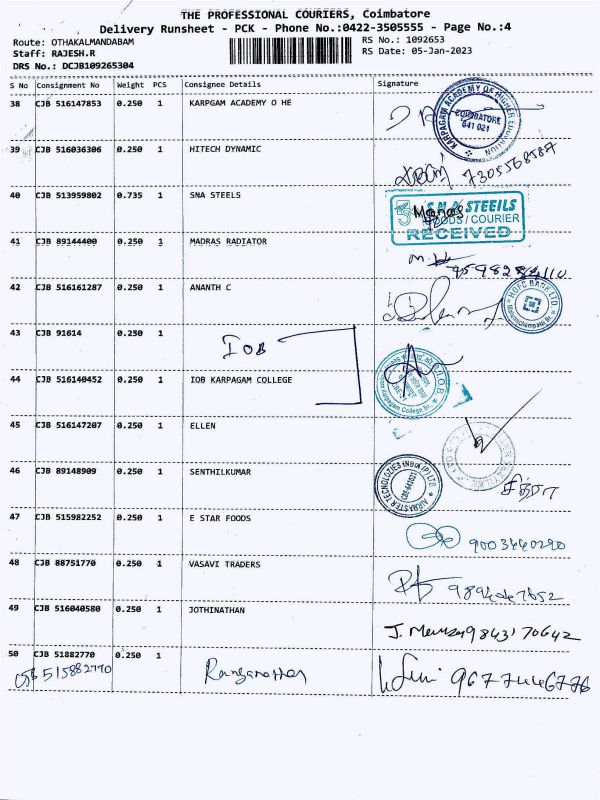 THE PROFESSIONAL COURIERS, Coimbatore
Delivery Runsheet - PCK - Phone No.:0422-3505555 - Page No.:4
Route: OTHAKALMANDABAM
RS No.: 1092653
Staff: RAJESH.R
RS Date: 05-Jan-2023
DRS No.: DCJB109265304
S No Consignment No Weight PCS Consignee Details Signature
38 CJB 516147853 0.250 1 KARPGAM ACADEMY O HE
KARPAGAM ACADEMY OF HIGHER EDUCATION
COIMBATORE
641 021
39 CJB 516036306 0.250 1 HITECH DYNAMIC
7305568587
40 CJB 513959802 0.735 1 SNA STEELS
SNA STEEILS
GOODS / COURIER
RECEIVED
41 CJB 89144400 0.250 1 MADRAS RADIATOR
42 CJB 516161287 0.250 1 ANANTH C
HDFC BANK LTD.
43 CJB 91614 0.250 1
IOB
44 CJB 516140452 0.250 1 IOB KARPAGAM COLLEGE
Karpagam College Br.
45 CJB 516147207 0.250 1 ELLEN
46 CJB 89148909 0.250 1 SENTHILKUMAR
சித்ரா
47 CJB 515982252 0.250 1 E STAR FOODS
9003440290
48 CJB 88751770 0.250 1 VASAVI TRADERS
49 CJB 516040580 0.250 1 JOTHINATHAN
9843170642
50 CJB 51882770 0.250 1
CJB 515882770 Ranganathan
9677446776